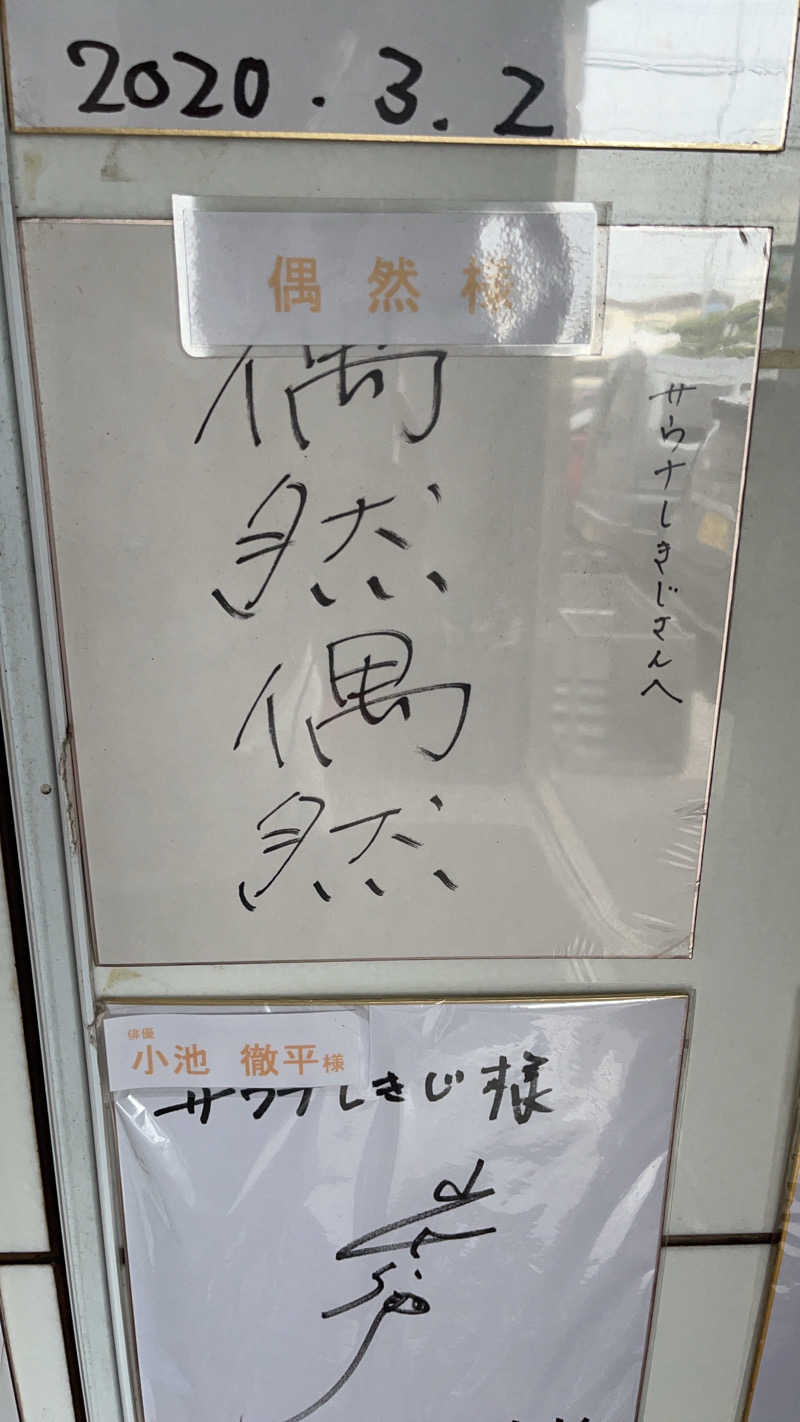 2020.3.2
偶然様
偶然偶然
サウナしきじさんへ
俳優
小池 徹平様
サウナしきじ様